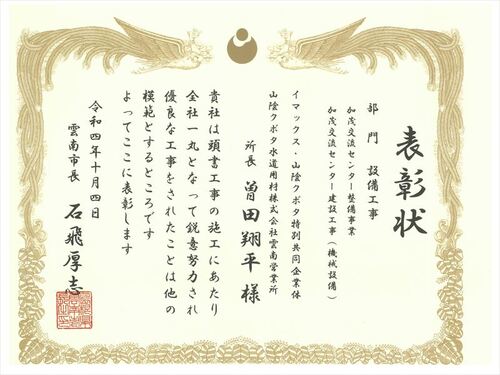 表彰状
部門 設備工事
加茂交流センター整備事業
加茂交流センター建設工事(機械設備)
イマックス・山陰クボタ特別共同企業体
山陰クボタ水道用材株式会社雲南営業所
所長 曽田翔平様
貴社は頭書工事の施工にあたり
全社一丸となって鋭意努力され
優良な工事をされたことは他の
模範とするところです
よってここに表彰します
令和四年十月四日
雲南市長 石飛厚志